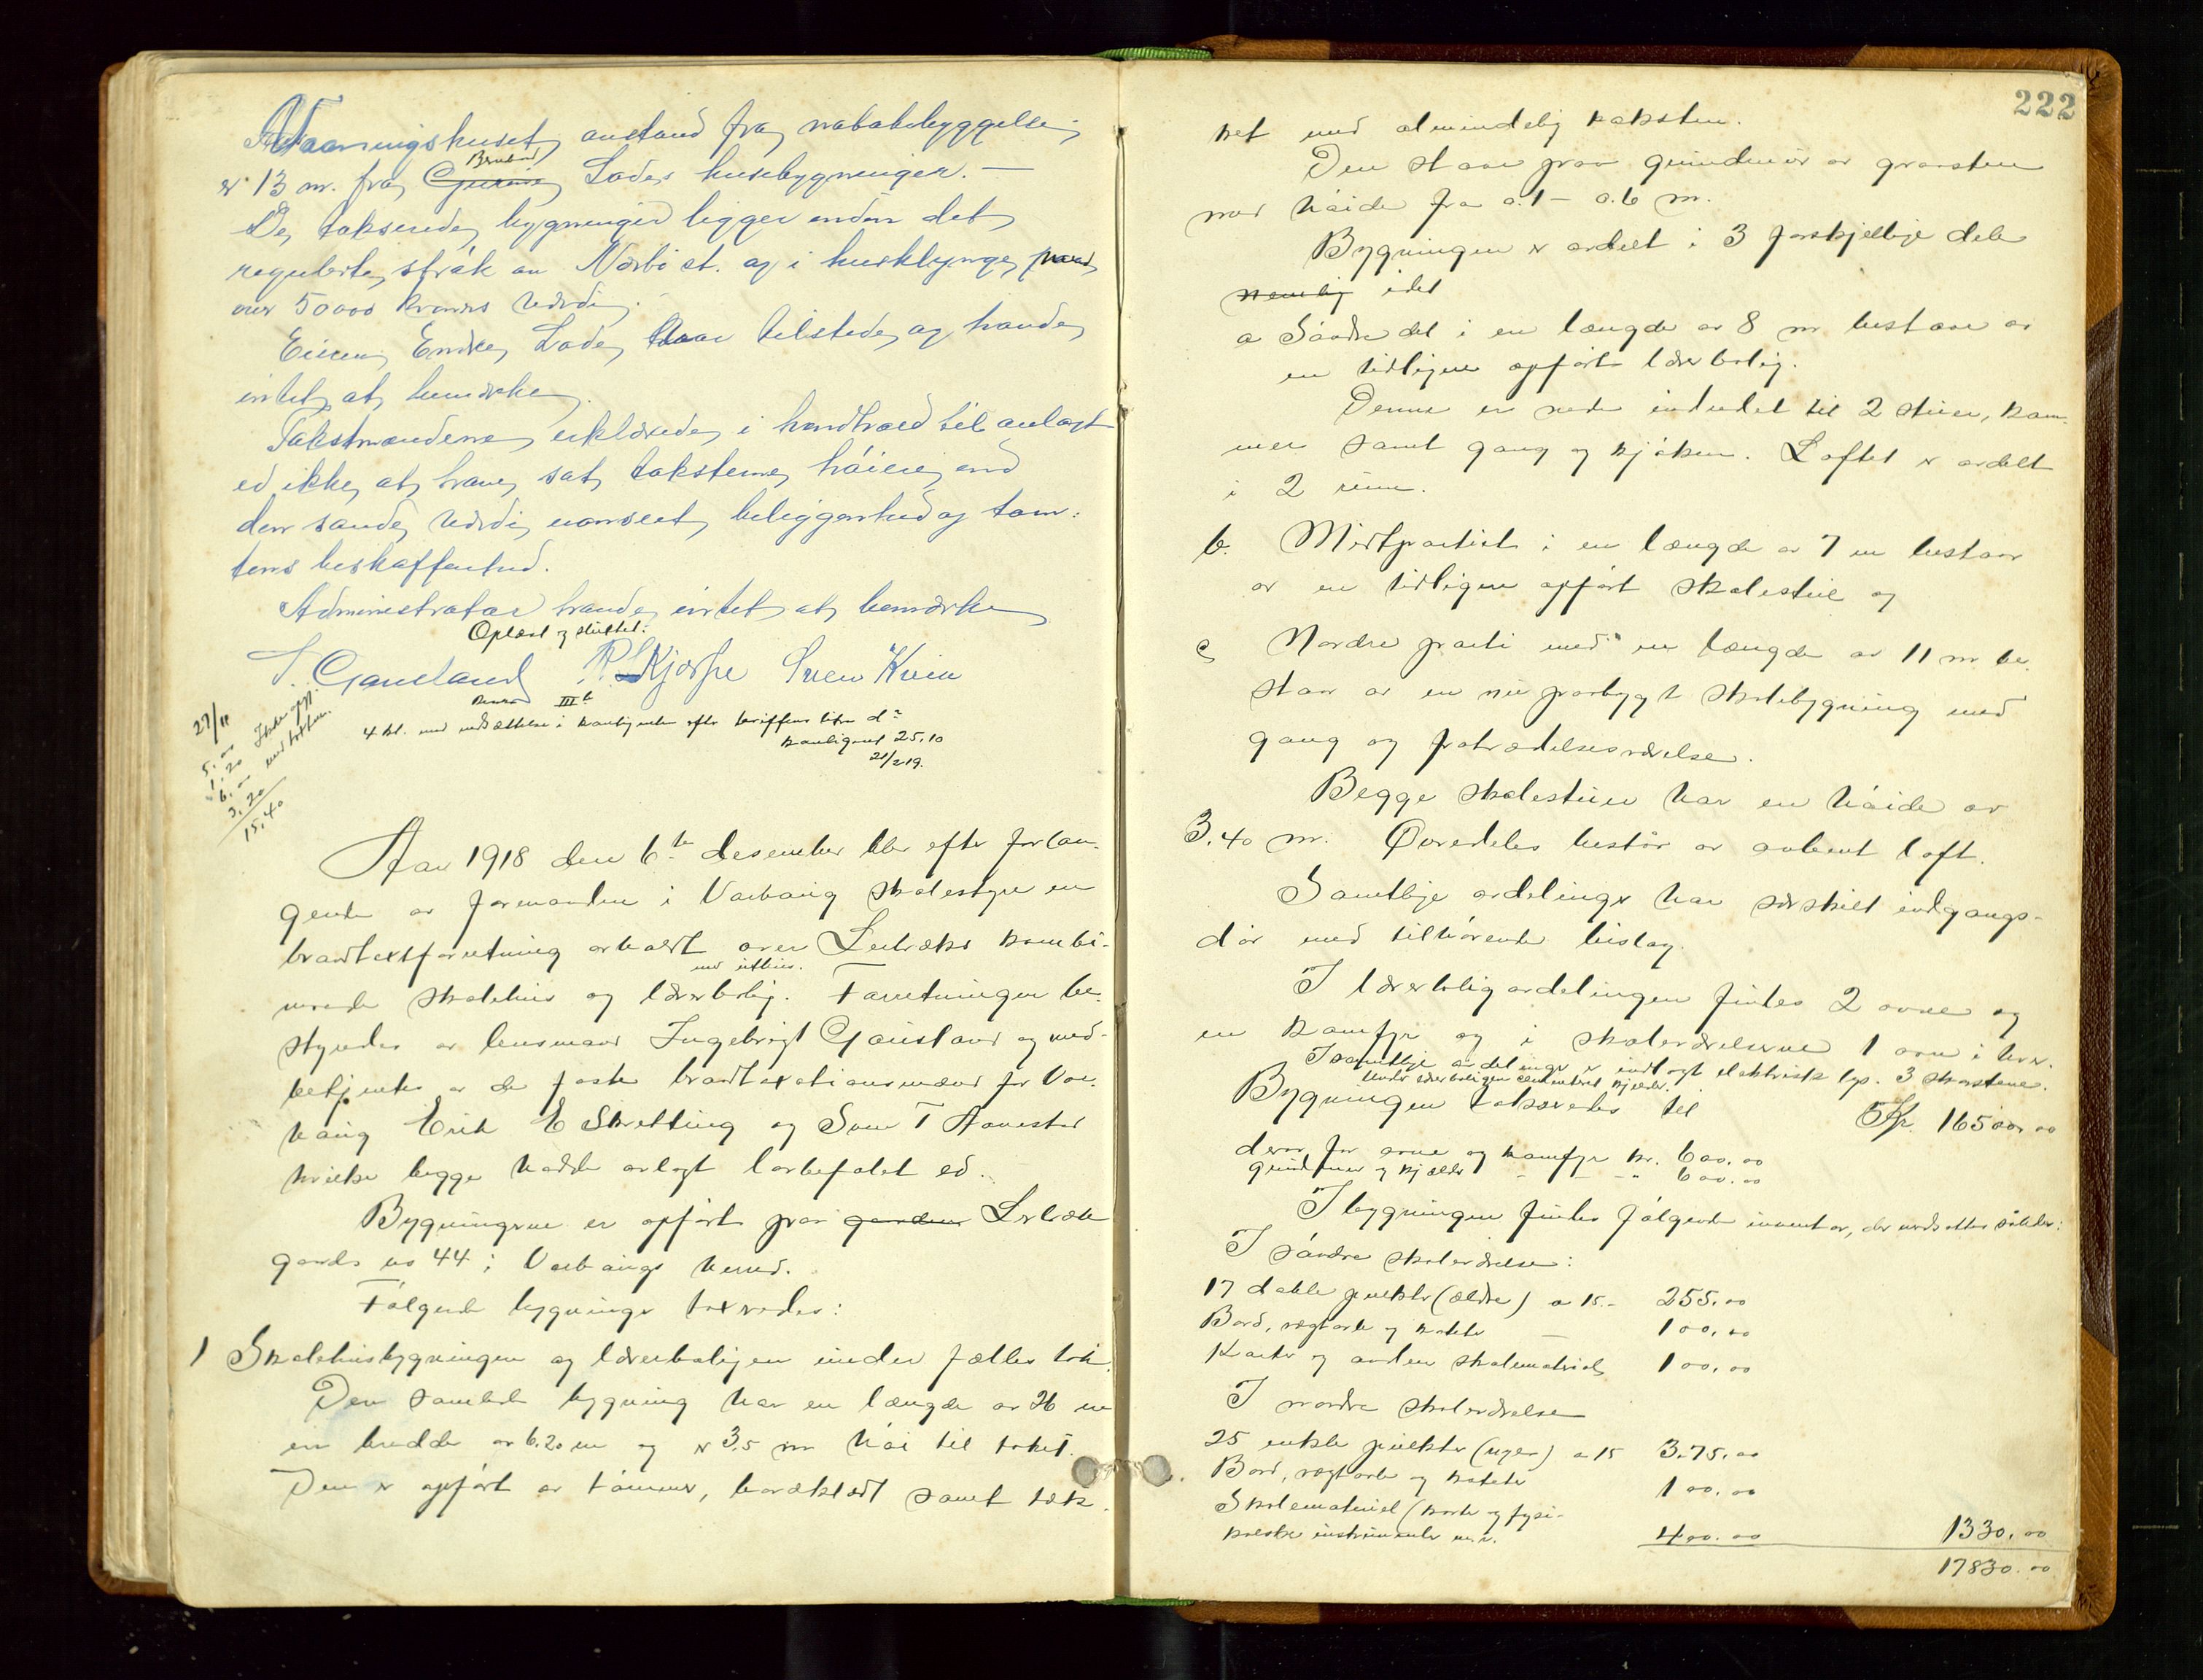 Vaaningshusets avstand fra nabobebyggelse
er 13 m. fra Gurine Brusand Lodes husebygninger. —
De takserede bygninger ligger inden det
regulerte strøk av Nærbø st. og i husklynge paa
over 50000 kroners værdi.
Eieren, Endre Lode, var tilstede og havde
intet at bemærke.
Takstmændene erklærede i henhold til avlagt
ed ikke at have sat taksterne høiere end
den sande værdi uanseet beliggenhed og tom-
tens beskaffenhed.
Administrator havde intet at bemærke
Oplæst og sluttet:
I. Gausland R. Kjosfie Sven Kvia
III b
4 kl. med nedsættelse i kontingenten efter tariffens litra d
kontigent 25.10
21/2 19.
27/11
5.00
1.20
6.00
3.20
15.40
Aar 1918 den 6te desember blev efter forlan-
gende av formanden i Varhaug skolestyre en
brandtakstforretning avholdt over Lerbræks kombi-
nerede skolehus og lærerbolig. Forretningen be-
med uthus.
styredes av lensmand Ingebrigt Gausland og med-
betjentes av de faste brandtaxationsmænd for Var-
haug Erik E Skretting og Sven T Aanestad
hvilke begge hadde avlagt lovbefalet ed.
Bygningerne er opført paa garden Lerbræk
gards no 44 i Varhaugs herred.
Følgende bygninger taxeredes:
1 Skolehusbygningen og lærerboligen under fælles tak.
Den samlede bygning har en længde av 26 m
en bredde av 6.20 m og er 3.5 m høi til taket.
Den er opført av tømmer, bordklædt samt tæk-
222
ket med almindelig taksten.
Den staar paa grundmur av graasten
med høide fra 0.1 – 0.6 m.
Bygningen er avdelt i 3 forskjellige dele
nemlig idet
a Søndre del i en længde av 8 m bestaar av
en tidligere opført lærerbolig.
Denne er nede indredet til 2 stuer, kam-
mer samt gang og kjøken. Loftet er avdelt
i 2 rum.
b. Midtpartiet i en længde av 7 m bestaar
av en tidligere opført skolestue og
c Nordre parti med en længde av 11 m be-
staar av en ny paabygt skolebygning med
gang og fratrædelsesværelse.
Begge skolestuer har en høide av
3.40 m. Øverdelen bestaar av aapent loft.
Samtlige avdelinger har særskilt indgangs-
dør med tilhørende bislag.
I lærerboligavdelingen findes 2 ovne og
en komfyr og i skoleværelserne 1 ovn i hver.
I samtlige avdelinger er indlagt elektrisk lys. 3 skorstene.
Under lærerboligen cementeret kjelder.
Bygningen takseredes til Kr. 16500.00
derav for ovne og komfyr kr. 600.00
grundmur og kjælder - — - " 600.00
I bygningen findes følgende inventar, der verdsettes således:
I søndre skoleværelse:
17 doble pulter (ældre) a 15.- 255.00
Bord, vægtavle og kateter — 100.00
Karter og anden skolemateriel 100.00
I nordre skoleværelse
25 enkle pulter (nye) a 15 375.00
Bord, vægtavle og kateter 100.00
Skolemateriel (karter og fysi-
kalske instrumenter m.v. 400.00 1330.00
17830.00